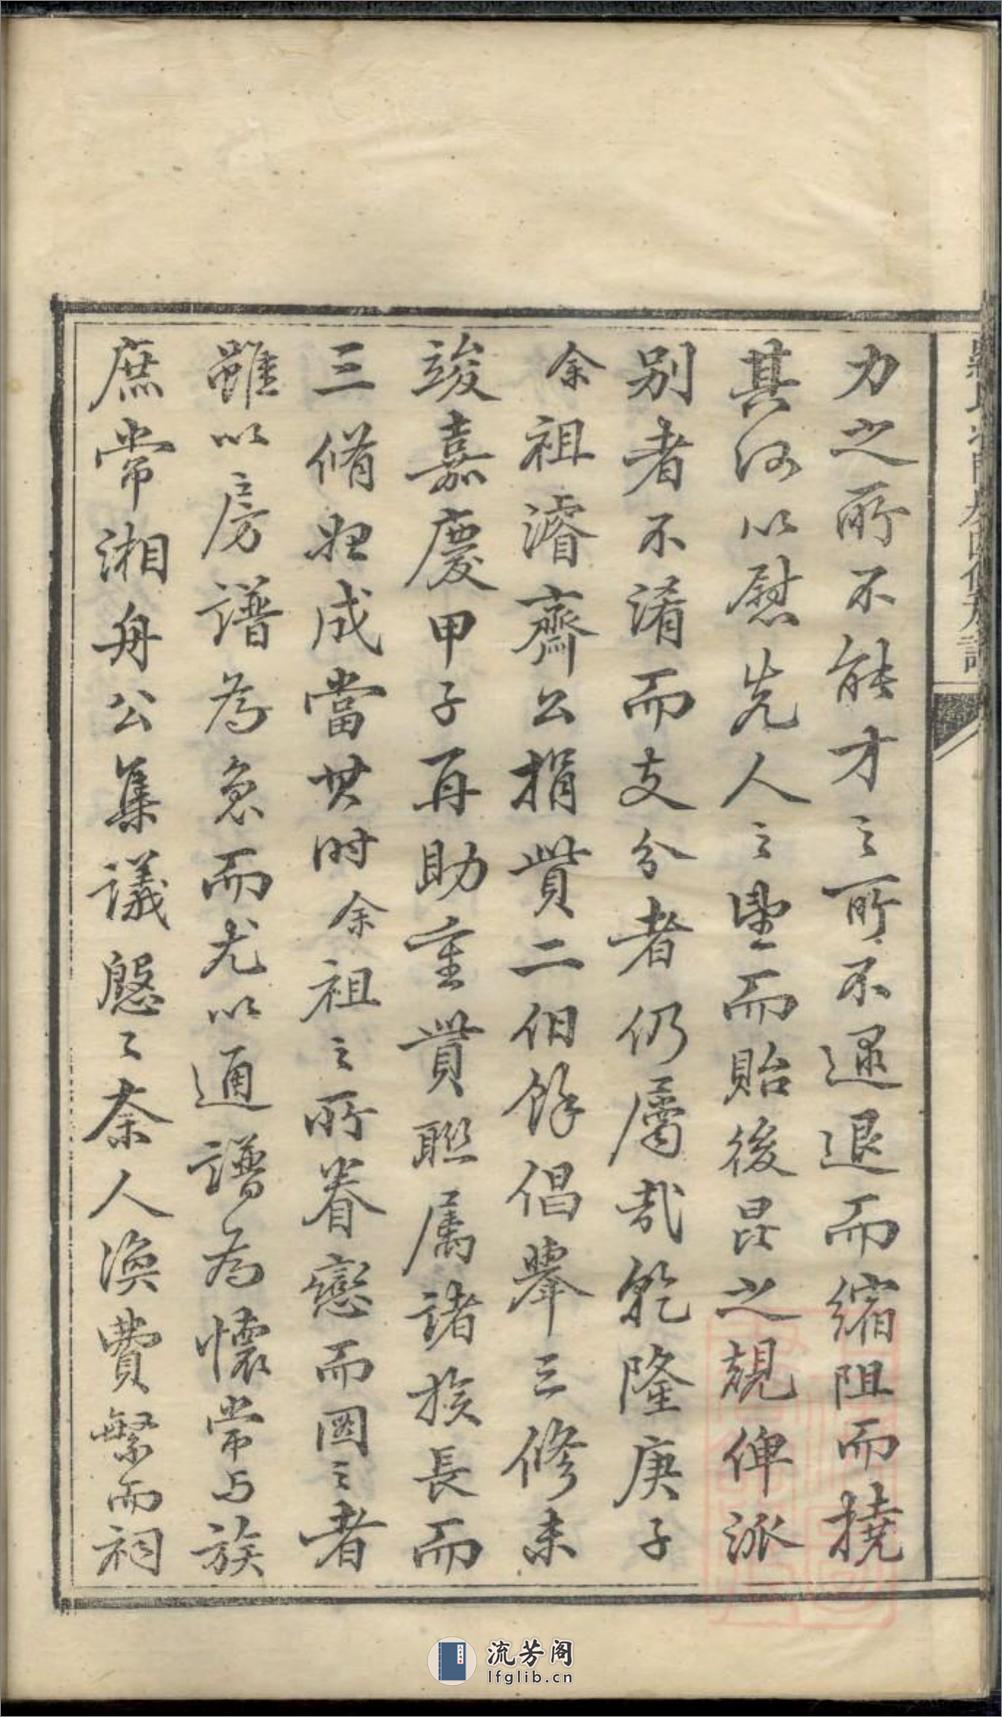 力之所不能才之所不逮退而縮阻而撓
其何以慰先人之望而貽後昆之規俾派
別者不淆而支分者仍屬哉乾隆庚子
余祖濬齋公捐貲二伯餘倡舉三修未
竣嘉慶甲子再助重貲聯属諸族長而
三脩始成當其時余祖之所眷戀而圖之者
雖以房譜為急而尤以通譜為懷常与族
庶常湘舟公集議慇〻奈人渙費繁而祠
流芳阁
lfglib.cn